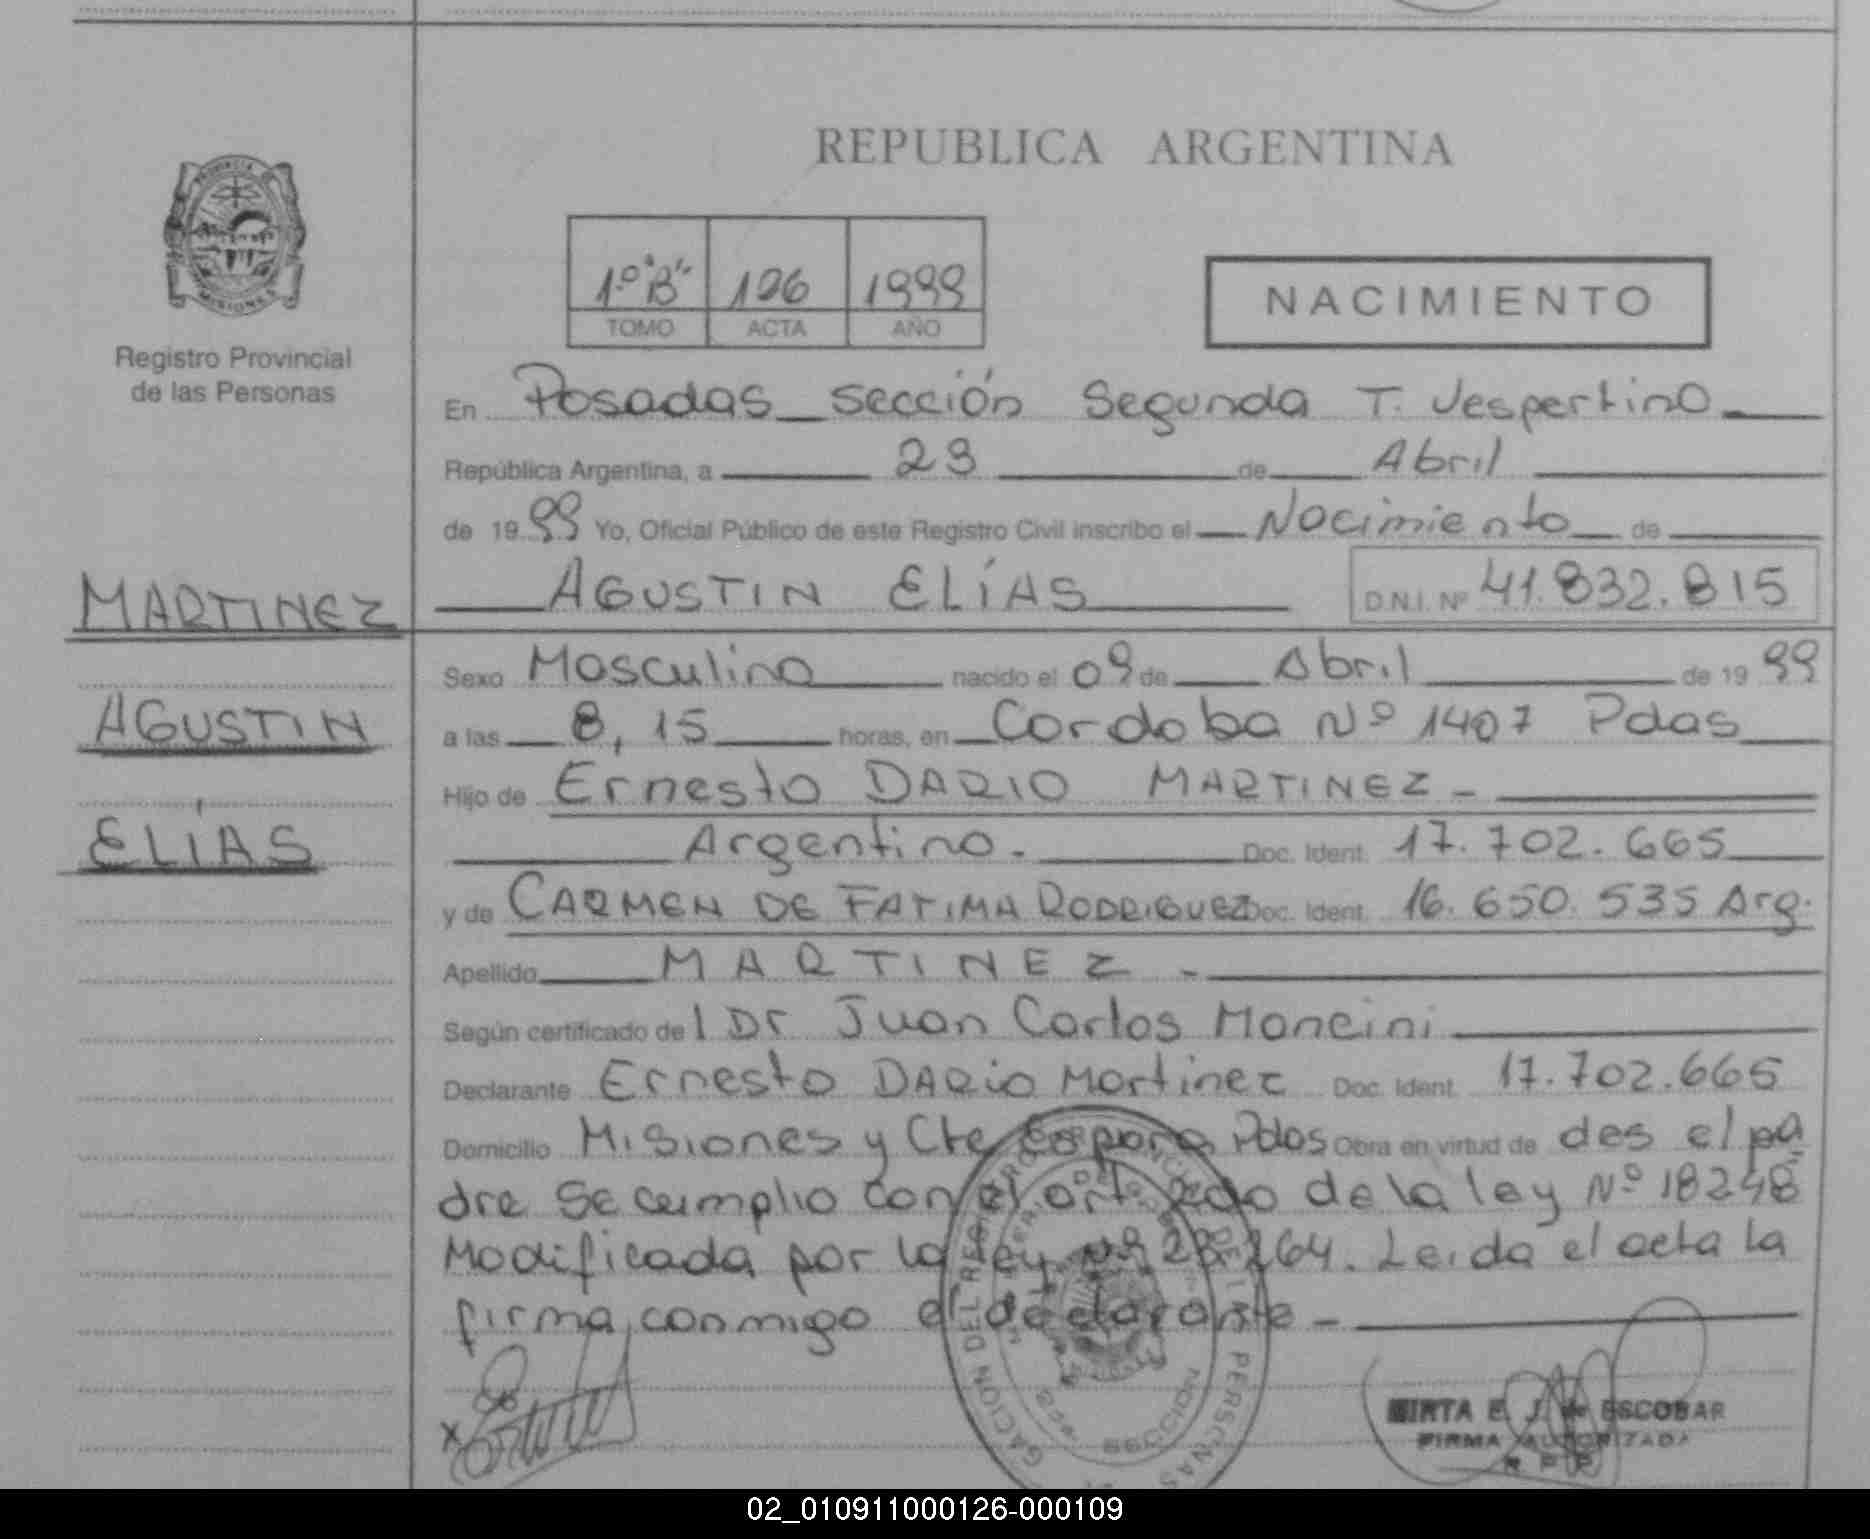 REPUBLICA ARGENTINA
PROVINCIA
MISIONES
Registro Provincial
de las Personas
1º "B" 126 1999
TOMO ACTA AÑO
NACIMIENTO
En Posadas sección Segunda T. Vespertino
República Argentina, a 23 de Abril
de 1999 Yo, Oficial Público de este Registro Civil inscribo el Nacimiento de
AGUSTIN ELÍAS D.N.I. Nº 41.832.815
MARTINEZ
AGUSTIN
ELÍAS
Sexo Masculino nacido el 09 de Abril de 1999
a las 8,15 horas, en Cordoba Nº 1407 Pdas
Hijo de Ernesto DARIO MARTINEZ -
Argentino. Doc. Ident. 17.702.665
y de CARMEN DE FATIMA RODRIGUEZ Doc. Ident. 16.650.535 Arg.
Apellido MARTINEZ -
Según certificado de l Dr Juan Carlos Mancini
Declarante Ernesto DARio Martinez Doc. Ident. 17.702.665
Domicilio Misiones y Cte Espora Pdas Obra en virtud de des el pa
dre Se cumplio con el art 2do de la ley Nº 18248
Modificada por la ley Nº 23.264. Leida el acta la
firma conmigo el declarante -
SECCION
MIRTA E. J. de ESCOBAR
FIRMA AUTORIZADA
R P P
02_010911000126-000109